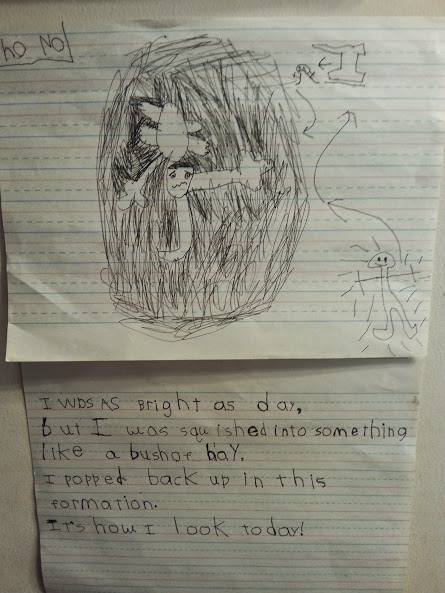 ho No!
I
I WDS AS Bright as day,
but I was squished into something
like a bushof haY.
I popped back up in this
formation.
It's how I look today!